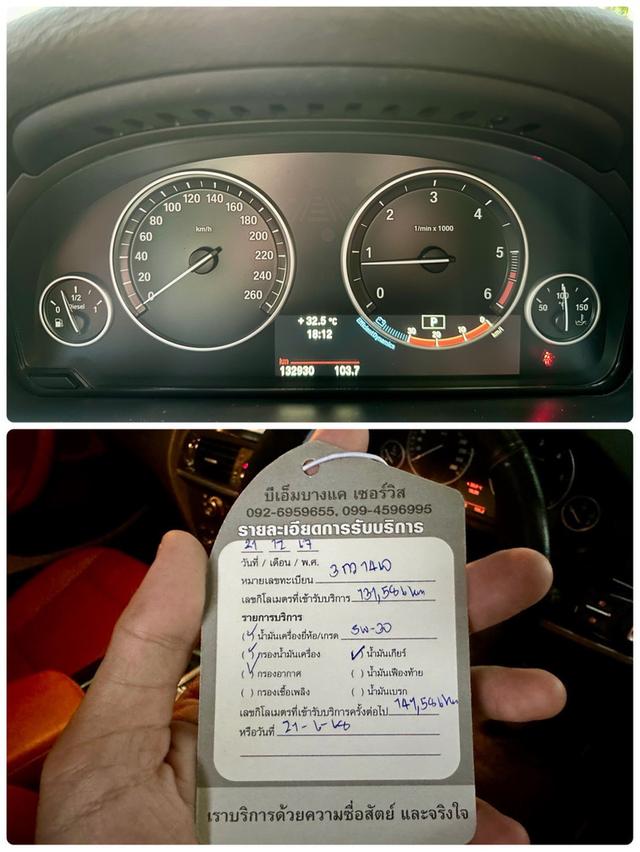 km/h
0
20
40
60
80
100
120
140
160
180
200
220
240
260
1/min x 1000
0
1
2
3
4
5
6
0
1/2
1
Diesel
50
100
°C
150
+32.5 °C
18:12
P
EfficientDynamics
30
20
10
6
km/l
km
132930 103.7
บีเอ็มบางแค เซอร์วิส
092-6959655, 099-4596995
รายละเอียดการรับบริการ
21 12 67
วันที่ / เดือน / พ.ศ.
หมายเลขทะเบียน
เลขกิโลเมตรที่เข้ารับบริการ 131,586 km
รายการบริการ
(✓) น้ำมันเครื่องยี่ห้อ/เกรด 5W-30
(✓) กรองน้ำมันเครื่อง (✓) น้ำมันเกียร์
(✓) กรองอากาศ ( ) น้ำมันเฟืองท้าย
( ) กรองเชื้อเพลิง ( ) น้ำมันเบรก
เลขกิโลเมตรที่เข้ารับบริการครั้งต่อไป 141,586 km
หรือวันที่ 21-6-68
เราบริการด้วยความซื่อสัตย์ และจริงใจ